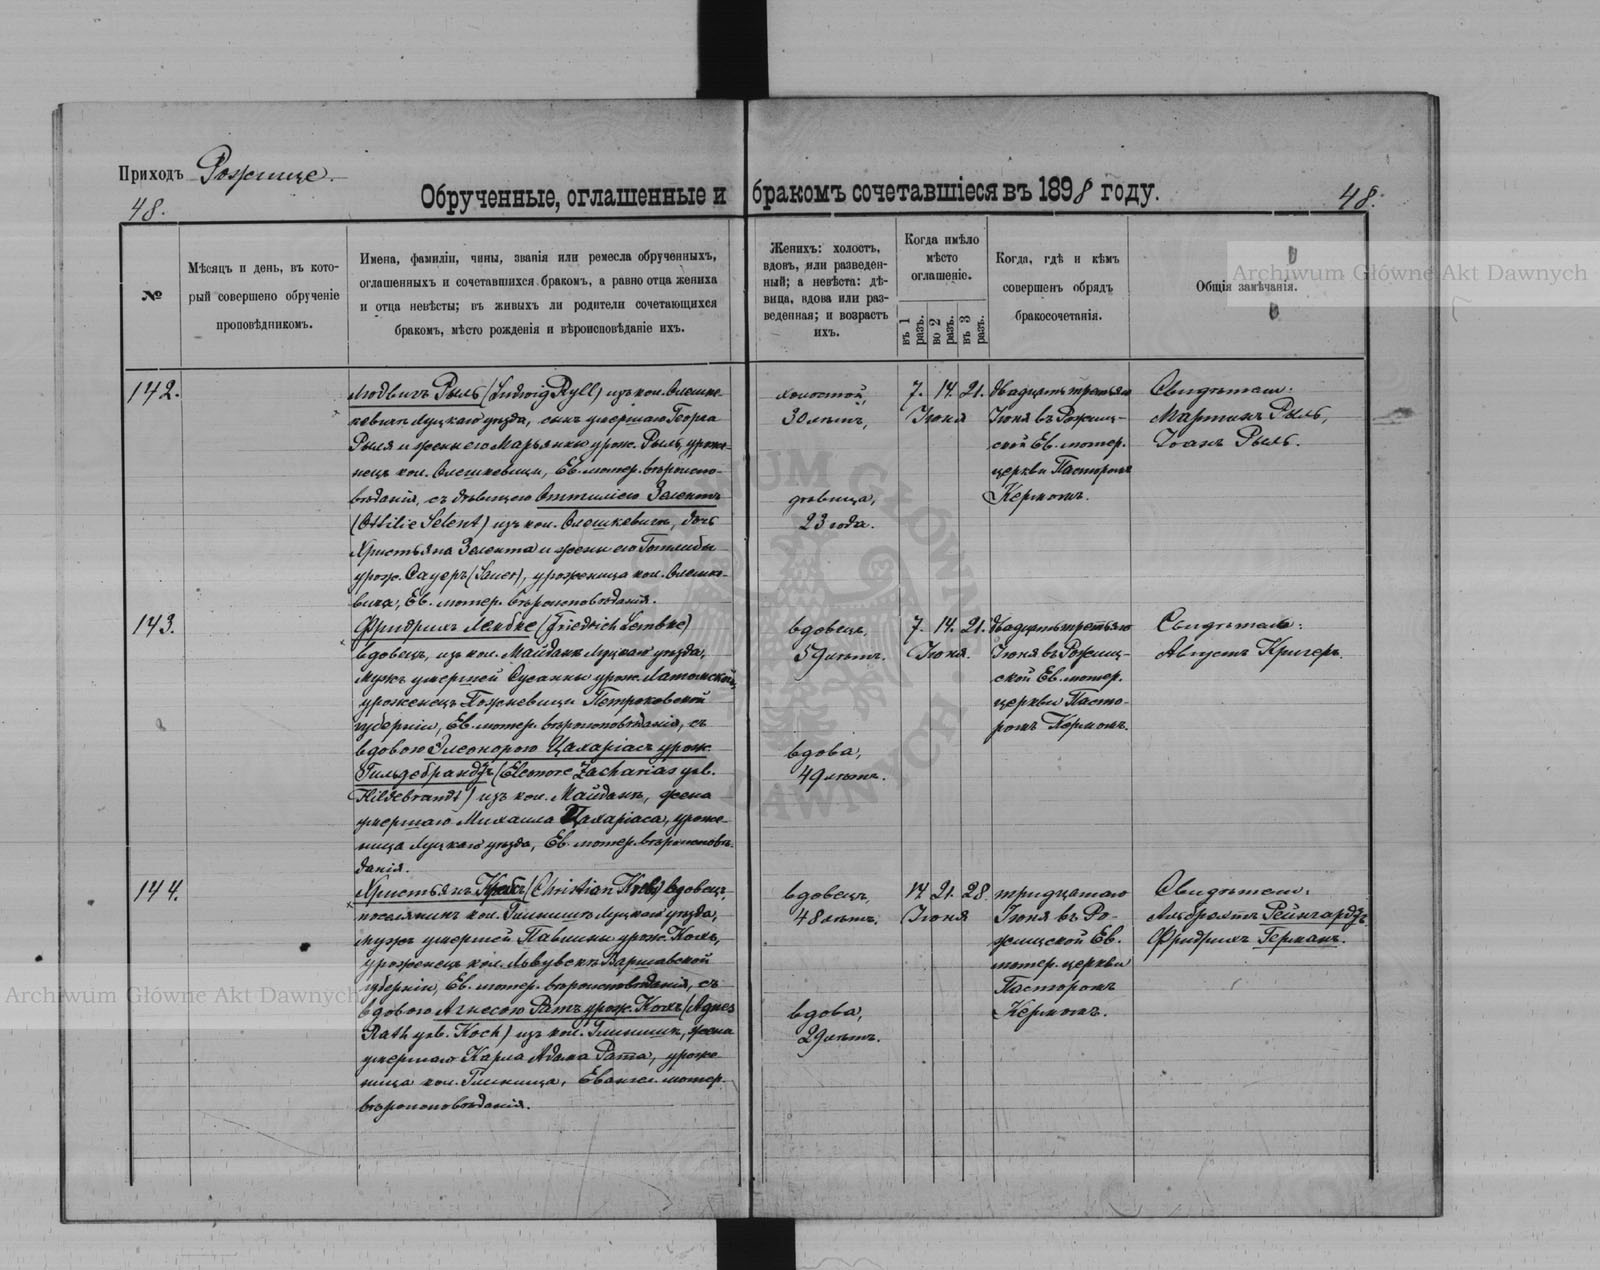 Приходъ Рожище.
48.
Обрученные, оглашенные и бракомъ сочетавшіеся въ 1898 году.
48.
№
Мѣсяцъ и день, въ кото-
рый совершено обрученіе
проповѣдникомъ.
Имена, фамиліи, чины, званія или ремесла обрученныхъ,
оглашенныхъ и сочетавшихся бракомъ, а равно отца жениха
и отца невѣсты; въ живыхъ ли родители сочетающихся
бракомъ, мѣсто рожденія и вѣроисповѣданіе ихъ.
Женихъ: холостъ,
вдовъ, или разведен-
ный; а невѣста: дѣ-
вица, вдова или раз-
веденная; и возрастъ
ихъ.
Когда имѣло
мѣсто
оглашеніе.
въ 1 разъ.
во 2 разъ.
въ 3 разъ.
Когда, гдѣ и кѣмъ
совершенъ обрядъ
бракосочетанія.
Общія замѣчанія.
142.
Людвигъ Рыль (Ludwig Ryll) изъ кол. Олешке-
вичи Луцкаго уѣзда, сынъ умершаго Георга
Рыля и жены его Марьянны урож. Рыль, уроже-
нецъ кол. Олешкевичи, Ев. лютер. вѣроиспо-
вѣданія, съ дѣвицею Оттиліею Зелентъ
(Ottilie Selent) изъ кол. Олешкевичи, дочь
Христьяна Зелента и жены его Готлибы
урож. Сауеръ (Sauer), уроженица кол. Олешке-
вичи, Ев. лютер. вѣроисповѣданія.
холостой,
30 лѣтъ,
дѣвица,
23 года.
7. 14. 21.
Іюня
Двадцать третьяго
Іюня въ Рожищ-
ской Ев. лютер.
церкви Пасторомъ
Кермомъ.
Свидѣтели:
Мартинъ Рыль,
Іоанъ Рыль.
143.
Фридрихъ Лембке (Friedrich Lembke)
вдовецъ, изъ кол. Майданъ Луцкаго уѣзда,
мужъ умершей Сусанны урож.
уроженецъ Петроковской
губерніи, Ев. лютер. вѣроисповѣданія, съ
вдовою Элеонорою Цахаріасъ урож.
Гильдебрандтъ (Eleonore Zacharias geb.
Hildebrandt) изъ кол. Майданъ, жена
умершаго Михаила Цахаріаса, уроже-
ница Луцкаго уѣзда, Ев. лютер. вѣроисповѣ-
данія.
вдовецъ,
59 лѣтъ.
вдова,
49 лѣтъ.
7. 14. 21.
Іюня.
Двадцать третьяго
Іюня въ Рожищ-
ской Ев. лютер.
церкви Пасто-
ромъ Кермомъ.
Свидѣтель:
Августъ Кригеръ.
144.
Христьянъ (Christian вдовецъ,
поселянинъ кол. Луцкаго уѣзда,
мужъ умершей Павлины урож. Кохъ,
уроженецъ кол. Варшавской
губерніи, Ев. лютер. вѣроисповѣданія, съ
вдовою Агнесою Ратъ урож. Кохъ (Agnes
Rath geb. Koch) изъ кол. жена
умершаго Карла Адама Рата, уроже-
ница кол. Евангел. лютер.
вѣроисповѣданія.
вдовецъ,
48 лѣтъ.
вдова,
29 лѣтъ.
14 21. 28.
Іюня
тридцатаго
Іюня въ Ро-
жищской Ев.
лютер. церкви
Пасторомъ
Кермомъ.
Свидѣтели:
Альбрехтъ Рейнгардтъ
Фридрихъ Германъ.
Archiwum Główne Akt Dawnych
Archiwum Główne Akt Dawnych